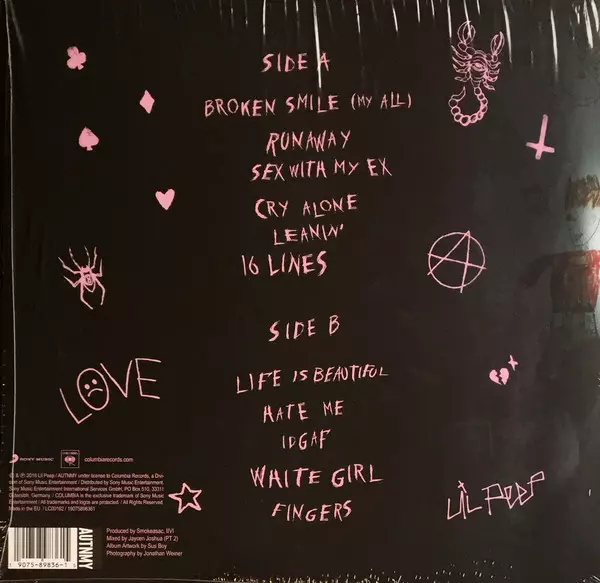 SIDE A
BROKEN SMILE (MY ALL)
RUNAWAY
SEX WITH MY EX
CRY ALONE
LEANIN'
16 LINES
SIDE B
LIFE IS BEAUTIFUL
HATE ME
IDGAF
WHITE GIRL
FINGERS
LOVE
LIL PEEP
SONY MUSIC
columbiarecords.com
℗ & © 2018 Lil Peep / AUTNMY under license to Columbia Records, a Divi-
sion of Sony Music Entertainment / Distributed by Sony Music Entertainment.
Sony Music Entertainment International Services GmbH, PO Box 510, 33311
Gütersloh, Germany / COLUMBIA is the exclusive trademark of Sony Music
Entertainment / All trademarks and logos are protected / All Rights Reserved.
Made in the EU. / LC00162 / 19075898361
AUTNMY
Produced by Smokeasac, IIVI
Mixed by Jaycen Joshua (PT 2)
Album Artwork by Sus Boy
Photography by Jonathan Weiner
9075-89836-1